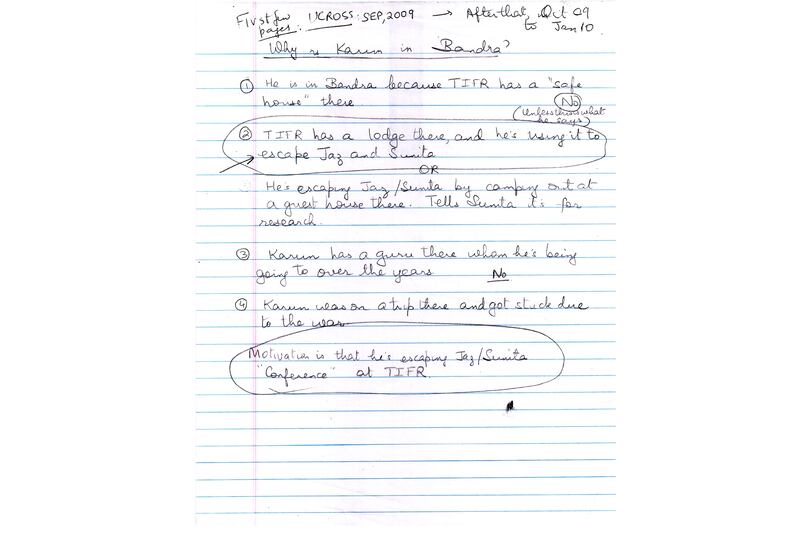 First few pages: UCROSS: SEP, 2009 → After that, Oct 09 to Jan 10
Why is Karun in Bandra?
① He is in Bandra because TIFR has a "safe
house" there. No
(Unless this is what he says)
② TIFR has a lodge there, and he's using it to
escape Jaz and Sunita
OR
He's escaping Jaz/Sunita by camping out at
a guest house there. Tells Sunita it's for
research.
③ Karun has a guru there whom he's being
going to over the years No
④ Karun was on a trip there and got stuck due
to the war
Motivation is that he's escaping Jaz/Sunita
"Conference" at TIFR.